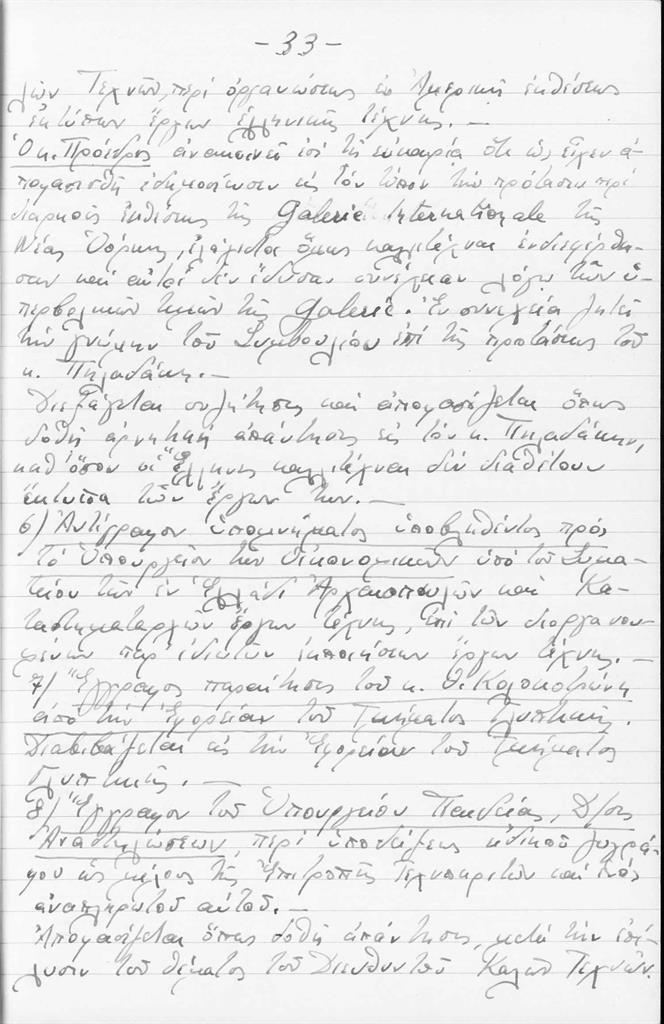 - 33 -
λῶν Τεχνῶν, περί ὀργανώσεως ἐν Ἀμερικῇ ἐκθέσεως
ἐκτύπων ἔργων ἑλληνικῆς τέχνης. —
Ὁ κ. Πρόεδρος ἀνακοινεῖ ἐπί τῇ εὐκαιρίᾳ ὅτι ὡς εἶχεν ἀ-
ποφασισθῆ ἐδημοσίευσεν εἰς τόν τύπον τήν πρότασιν περί
διαρκοῦς ἐκθέσεως τῆς Galerie Internationale τῆς
Νέας Ὑόρκης, ἐλάχιστοι ὅμως καλλιτέχναι ἐνδιεφέρθη-
σαν καί αὐτοί δέν ἔδωσαν συνέχειαν λόγῳ τῶν ὑ-
περβολικῶν τιμῶν τῆς Galerie. Ἐν συνεχείᾳ ζητεῖ
τήν γνώμην τοῦ Συμβουλίου ἐπί τῆς προτάσεως τοῦ
κ. Πηλαδάκη. —
Διεξάγεται συζήτησις καί ἀποφασίζεται ὅπως
δοθῆ ἀρνητική ἀπάντησις εἰς τόν κ. Πηλαδάκην,
καθ' ὅσον οἱ Ἕλληνες καλλιτέχναι δέν διαθέτουν
ἔκτυπα τῶν ἔργων των. —
6) Ἀντίγραφον ὑπομνήματος ὑποβληθέντος πρός
τό Ὑπουργεῖον τῶν Οἰκονομικῶν ὑπό τοῦ Σωμα-
τείου τῶν ἐν Ἑλλάδι Ἀρχαιοπωλῶν καί Κα-
ταστηματαρχῶν ἔργων τέχνης, ἐπί τῶν διοργανου-
μένων παρ' ἰδιωτῶν ἐκποιήσεων ἔργων τέχνης. —
7) Ἔγγραφος παραίτησις τοῦ κ. Θ. Κολοκοτρώνη
ἀπό τήν Ἐφορείαν τοῦ Τμήματος Γλυπτικῆς.
Διαβιβάζεται εἰς τήν Ἐφορείαν τοῦ Τμήματος
Γλυπτικῆς. —
8) Ἔγγραφον τοῦ Ὑπουργείου Παιδείας, Δ/σις
Ἀναστηλώσεων, περί ὑποδείξεως εἰδικοῦ ζωγρά-
φου ὡς μέλους τῆς Ἐπιτροπῆς Τεχνοκριτῶν καί ἑνός
ἀναπληρωτοῦ αὐτοῦ. —
Ἀποφασίζεται ὅπως δοθῆ ἀπάντησις, μετά τήν ἐπί-
λυσιν τοῦ θέματος τοῦ Διευθυντοῦ Καλῶν Τεχνῶν.